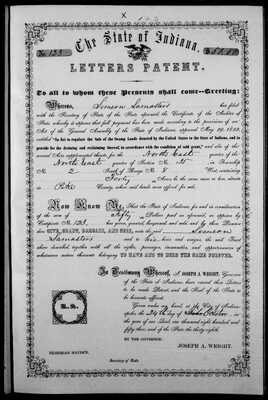 The State of Indiana.
No 123
LETTERS PATENT.
To all to whom these Presents shall come—Greeting:
Whereas, Simeon Lamasters has filed
with the Secretary of State of the State aforesaid the Certificate of the Auditor of
State, whereby it appears that full payment has been made according to the provisions of an
Act of the General Assembly of the State of Indiana, approved May 29, 1852,
entitled "An Act to regulate the Sale of the Swamp Lands donated by the United States to the State of Indiana, and to
provide for the draining and reclaiming thereof, in accordance with the condition of said grant," and also of the
several Acts supplemental thereto, for the North East quarter of the
North East quarter of Section No. in Township
No. 2 of Range No. 8 West containing
Forty Acres, be the same more or less, situate
in Pike County, which said lands were offered for sale.
Now Know Ye, That the State of Indiana, for and in consideration
of the sum of Fifty Dollars paid as aforesaid, as appears by
Certificate No. 123, has given, granted, bargained and sold, and by these Presents
does GIVE, GRANT, BARGAIN, AND SELL, unto the said Simeon
Lamasters and to his heirs and assigns, the said Tract
above described, together with all the rights, privileges, immunities, and appurtenances of
whatsoever nature thereunto belonging TO HAVE AND TO HOLD THE SAME FOREVER.
In Testimony Whereof, I, JOSEPH A. WRIGHT, Governor
of the State of Indiana, have caused these Letters
to be made Patent, and the Seal of the State to
be hereunto affixed.
Given under my hand, at the City of Indianapolis,
this 24th day of in
the year of our Lord one thousand eight hundred and
fifty three, and of the State the thirty eighth.
L. S.
BY THE GOVERNOR:
JOSEPH A. WRIGHT.
NEHEMIAH HAYDEN,
Secretary of State